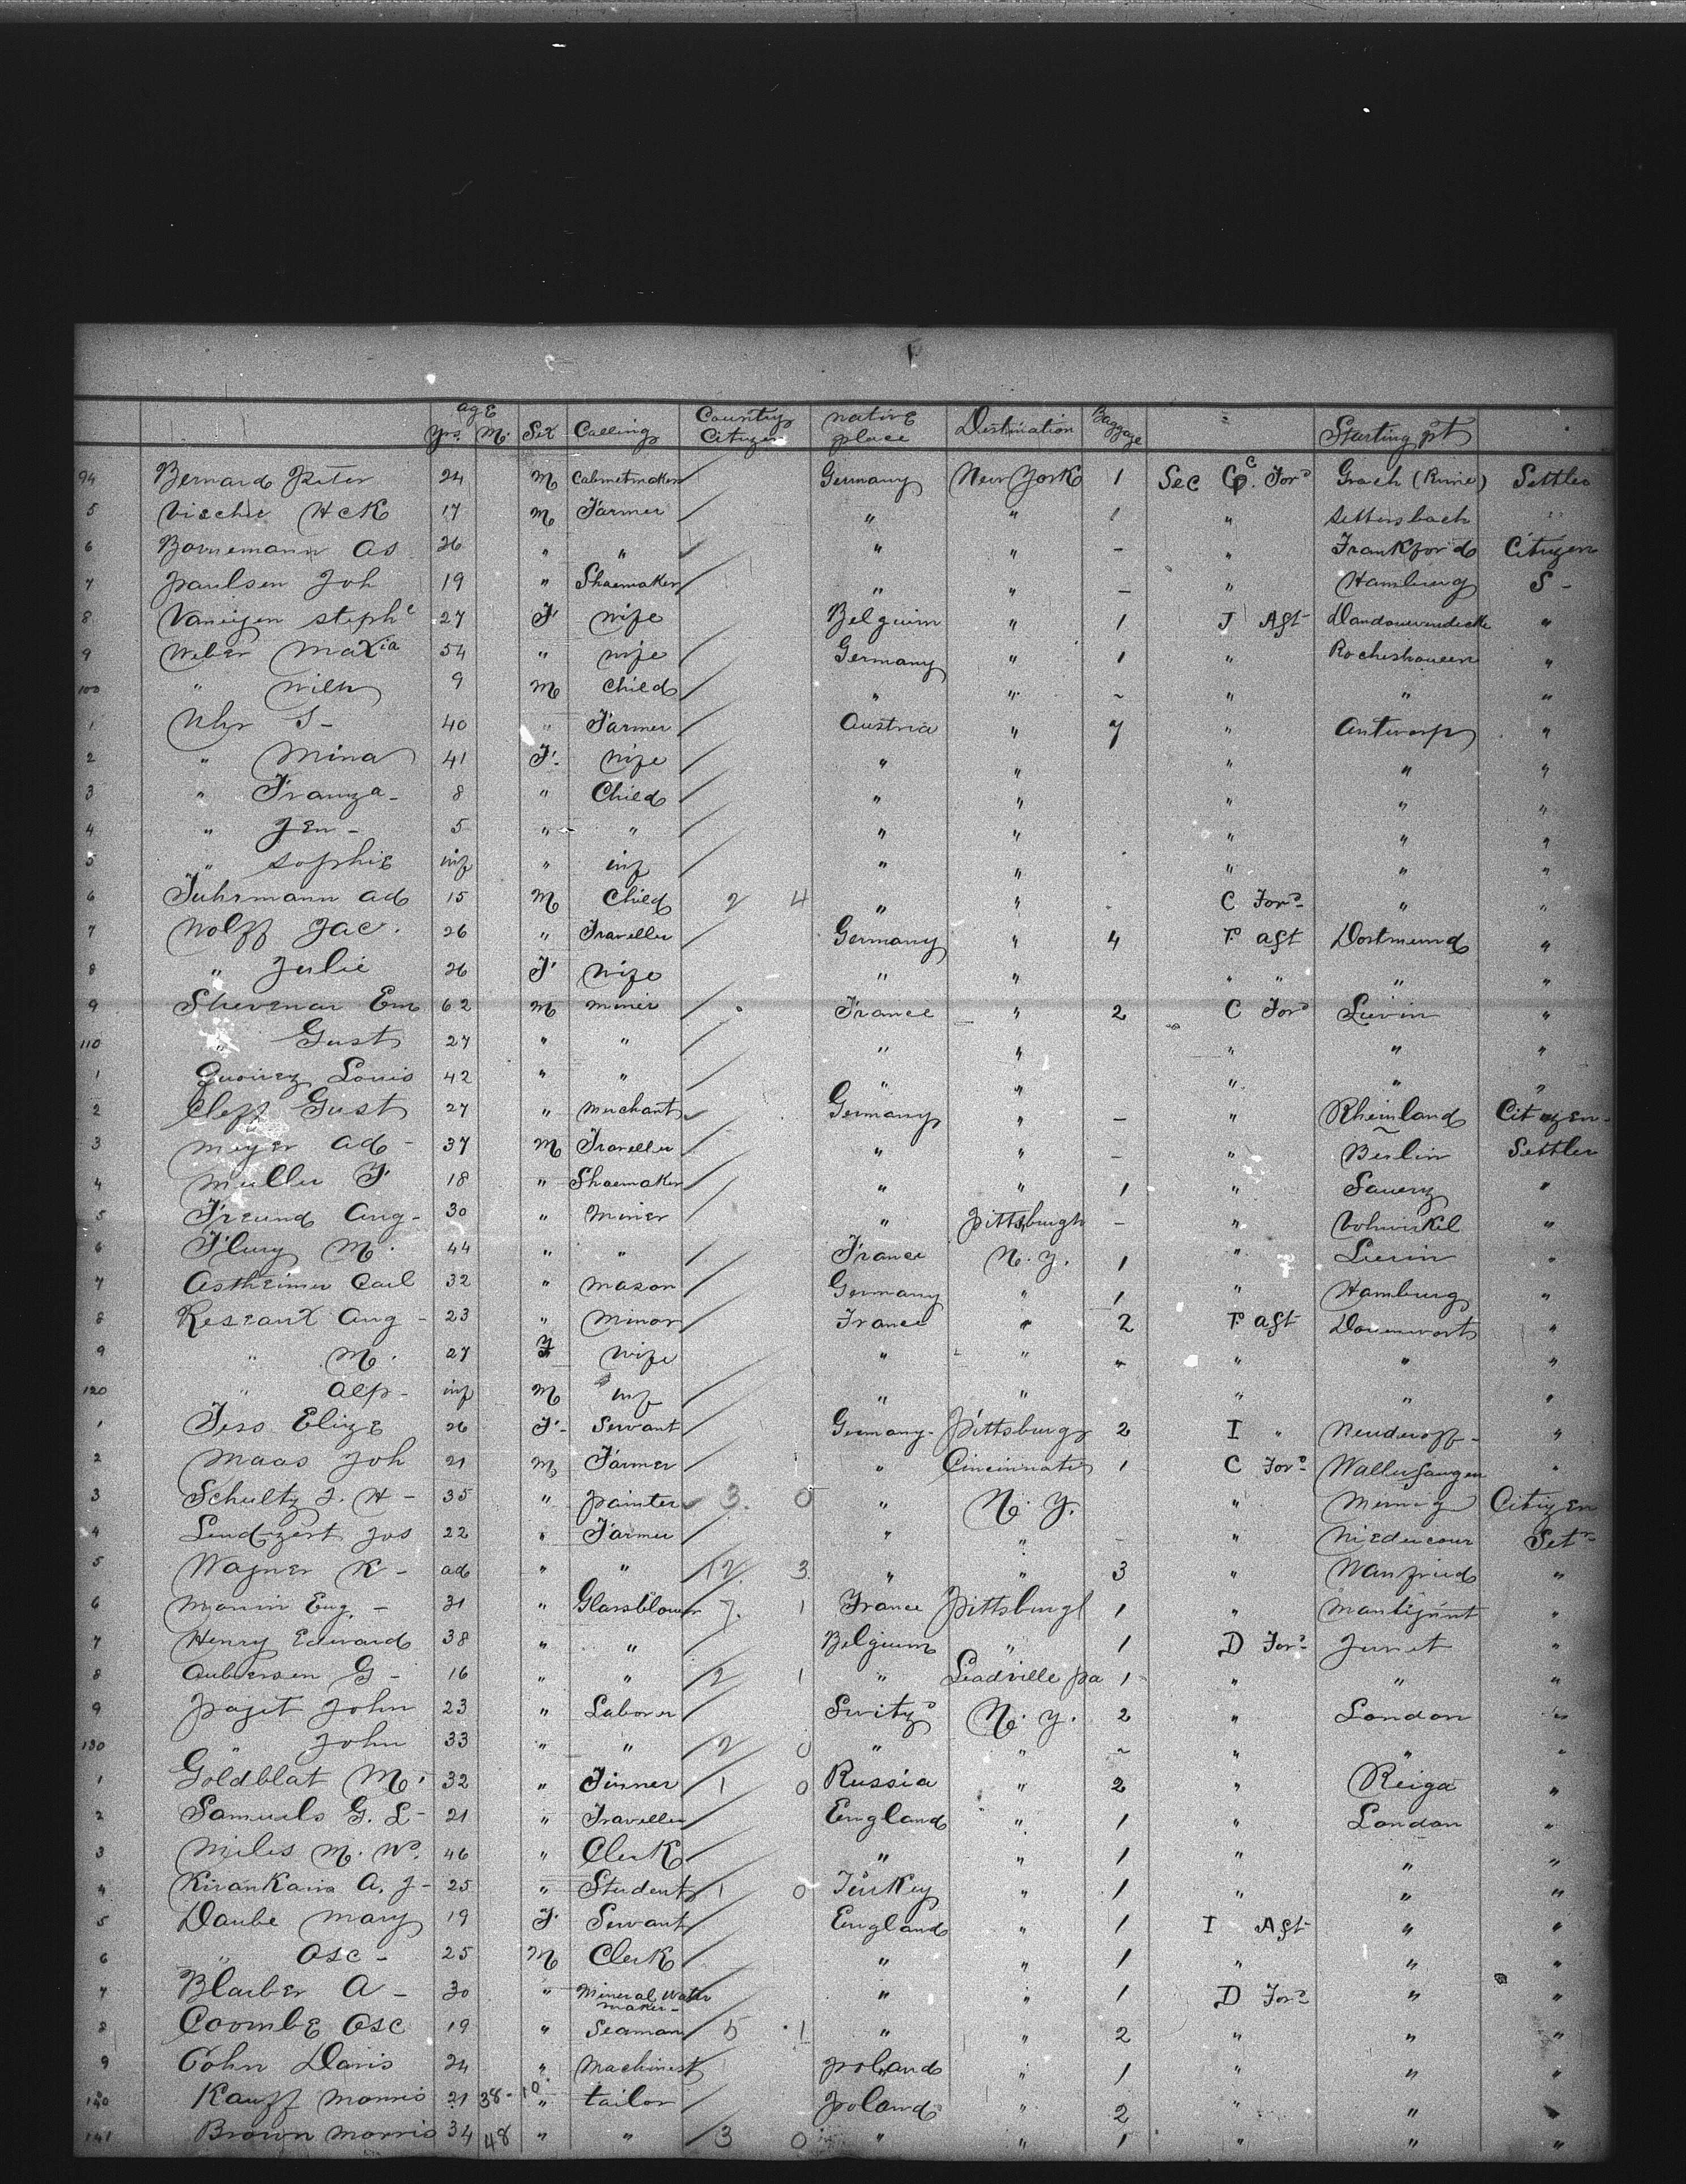 age
Yrs. M. Sex Calling Country Citizen native place Destination Baggage Starting pt
94 Bernard Peter 24 M Cabinetmaker Germany New York 1 Sec C. For^d Grach (Rine) Settler
5 Vischer HcK 17 M Farmer " " 1 " "
6 Bornemann As 26 " " " " - " Frankford Citizen
7 Paulsen Joh 19 " Shaemaker " " - " Hamburg S -
8 Vaneijen steph^e 27 F wife Belgium " 1 I Aft "
9 Weber Max^ia 54 " wife Germany " 1 " "
100 " Wilh 9 M Child " " - " " "
1 Uhr S - 40 " Farmer Austria " 7 " Antwerp "
2 " Mina 41 F. wife " " " " "
3 " Franza - 8 " Child " " " " "
4 " Jen - 5 " " " " " " "
5 " Sophie inf " inf " " " " "
6 Fuhrmann Ad 15 M Child 2 4 " " C For^d " "
7 Wolff Jac. 26 " Traveller Germany " 4 F. aft Dortmund "
8 " Julie 26 F wife " " " " " "
9 Shevenar Em 62 M miner France " 2 C For^d Lievin "
110 " Gust 27 " " " " " " "
1 Louis 42 " " " " " " "
2 Cleff Gust 27 " Merchant Germany " - " Rheinland Citizen -
3 Meyer Ad - 37 M Traveller " " - " Berlin Settler
4 Muller F 18 " Shaemaker " " 1 " "
5 Freund Aug - 30 " Miner " Pittsburgh - " Vohwikel "
6 Flury M. 44 " " France N. Y. 1 " Lievin "
7 Astheimer Carl 32 " Mason Germany " 1 " Hamburg "
8 Reseaux Aug - 23 " Minor France " 2 F. aft "
9 " M. 27 F wife " " " " " "
120 " Alp - inf M inf " " " " "
1 Jess Elize 26 F - Servant Germany - Pittsburg 2 I " "
2 Maas Joh 21 M Farmer " Cincinnati 1 C For^d Wallerfangen "
3 Schultz J. H - 35 " painter 3. 0 " N. Y. " Citizen
4 Jos 22 " Farmer " " - " Set^r
5 Wagner K - ad " " 12. 3 " " 3 " Wanfried "
6 Eug. - 31 " Glassblower 7. 1 France Pittsburg 1 " "
7 Henry Edward 38 " " Belgium " 1 D For^d Jumet "
8 G - 16 " " 2 1 " Leadville Pa 1 " " "
9 Paget John 23 " Laborer Switz^d N. Y. 2 " London "
130 " John 33 " " 2 0 " " - " " "
1 Goldblat M. 32 " Tinner 1 0 Russia " 2 " Reiga "
2 Samuels G. L - 21 " Traveller England " 1 " London "
3 Miles M. W. 46 " Clerk " " 1 " " "
4 A. J - 25 " Student 1 0 Turkey " 1 " " "
5 Daube Mary 19 F Servant England " 1 I Aft " "
6 " Osc - 25 M Clerk " " 1 " " "
7 Blaiber A - 30 " Mineral Water maker - " " 1 D For^d " "
8 Coombe Osc 19 " Seaman 5 1 " " 2 " " "
9 Cohn Davis 24 " Machinest Poland " 1 " " "
140 Kauff Morris 21 38 - 10. " tailor Poland " 2 " " "
141 Brown Morris 34 48 " " 3 0 " " 1 " " "